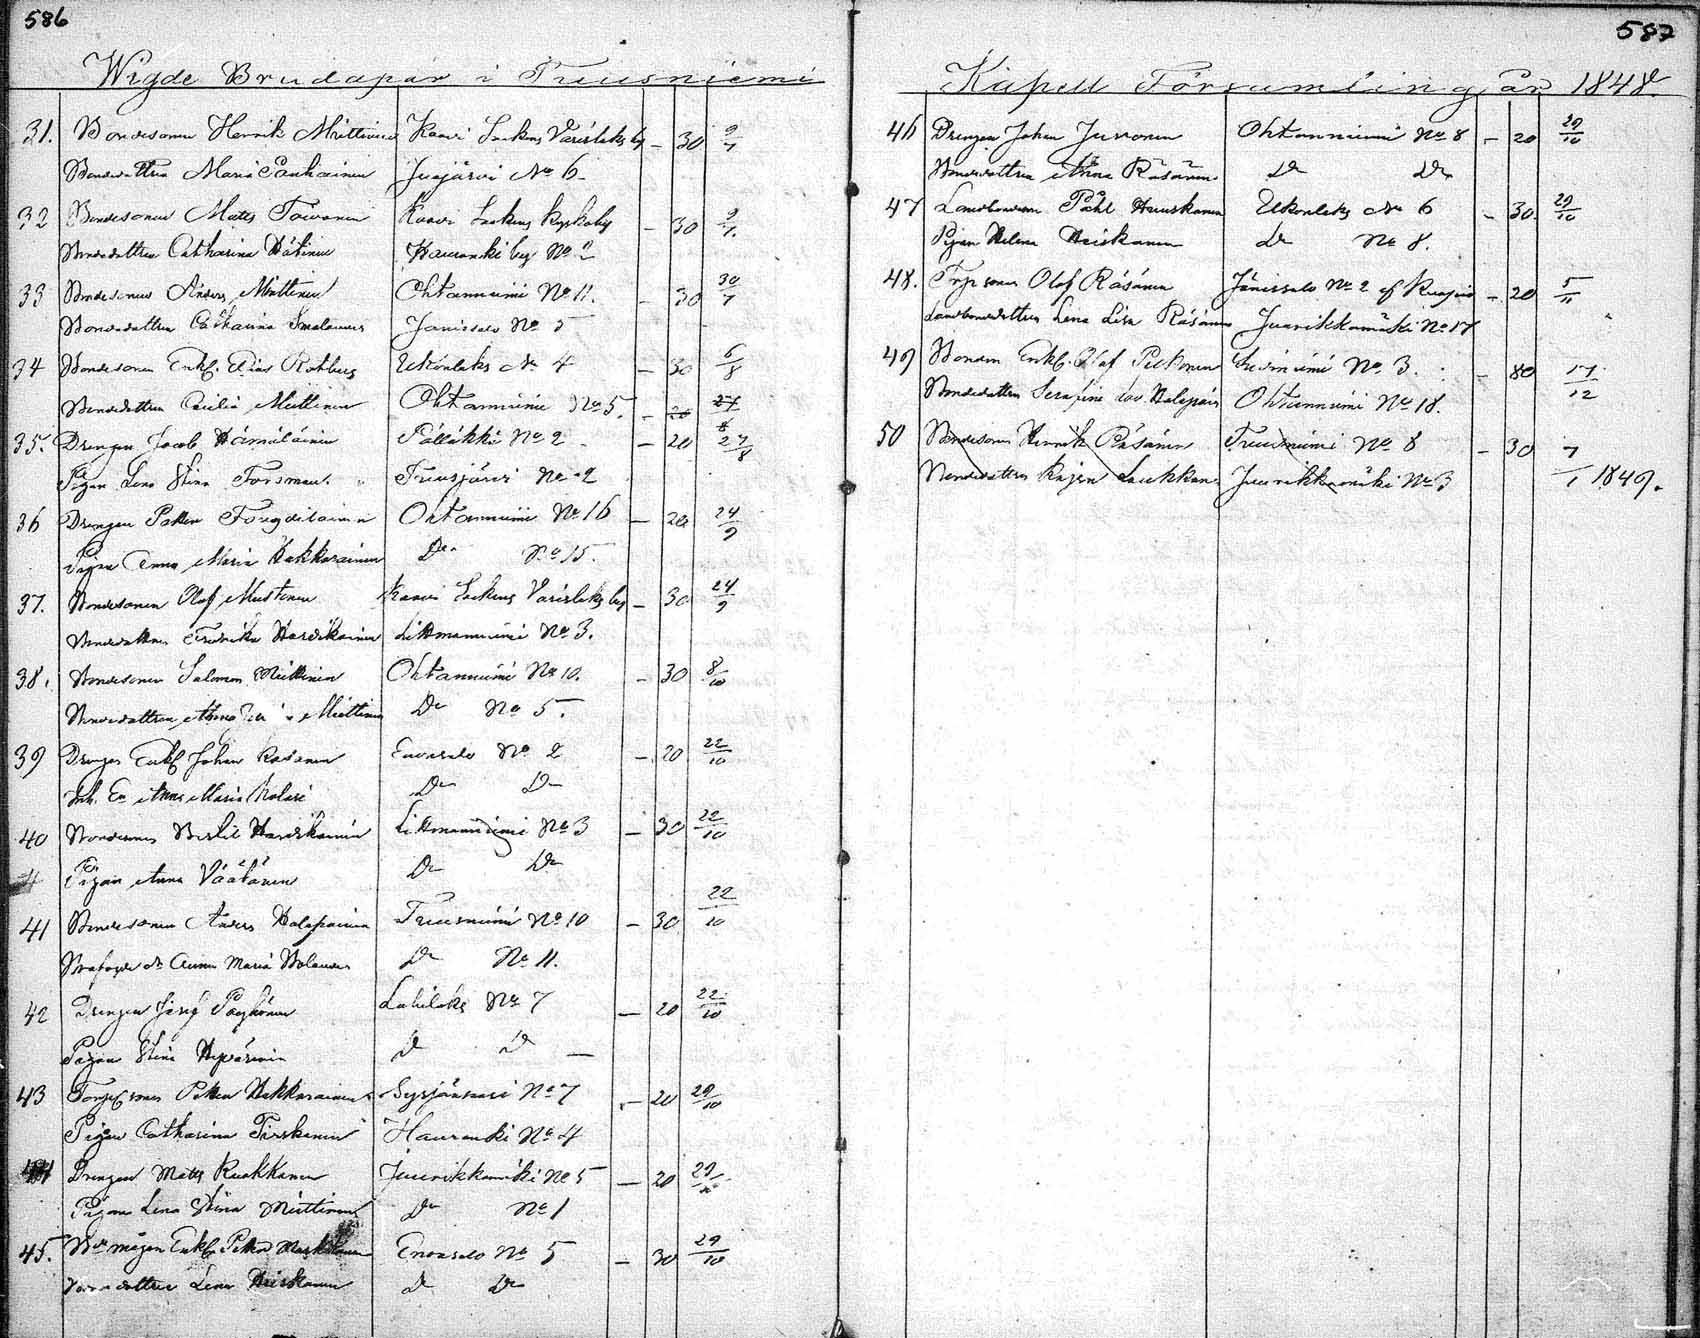 586
Wigde Brudapar i Tuusniemi
31. Bondesonen Henrik Miettinen Kaavi Sockens Varislaks by - 30 9/7
Bondedottren Maria Pauhainen Juojärvi No 6
32 Bondesonen Matts Toivanen Kaavi Sockens Kyrkoby - 30 9/7
Bondedottren Catharina Hätinen Hauranki by No 2
33 Bondesonen Anders Miettinen Ohtanniemi No 11. - 30 30/7
Bondedottren Catharina Smolander Jänissalo No 5
34 Bondesonen Enkl. Elias Rotberg Ukonlaks No 4 - 30 6/8
Bondedottren Cecilia Miettinen Ohtanniemi No 5. - 20 27/8
35. Drengen Jacob Hämäläinen Pälläkkä No 2 - 20 27/8
Pigan Lena Stina Forsman Tuusjärvi No 2
36 Drengen Petter Ohtanniemi No 16 - 20 24/9
Pigan Anna Maria Hakkarainen Do No 15.
37. Bondesonen Olof Mustonen Kaavi Sockens Varislaks by - 30 24/9
Bondedottren Fredrika Hardikainen Littmanniemi No 3.
38. Bondesonen Salomon Miettinen Ohtanniemi No 10. - 30 8/10
Bondedottren Anna Miettinen Do No 5.
39 Drengen Enkl Johan Räsänen Enonsalo No 2 - 20 22/10
Inh. En Anna Maria Kolari Do Do
40 Bondesonen Bertil Hardikainen Littmanniemi No 3 - 30 22/10
Pigan Anna Väätänen Do Do
41 Bondesonen Anders Halapainen Tuusniemi No 10 - 30 22/10
Anna Maria Molander Do No 11.
42 Drengen Josef Pöyhönen Lahilaks No 7 - 20 22/10
Pigan Stina Hyvärinen D D
43 Torpesonen Petter Hakkarainen Syrjäsaari No 7 - 20 29/10
Pigan Catharina Pirskanen Hauranki No 4
44 Drengen Matts Ruokkanen Juurikkamäki No 5 - 20 29/10
Pigan Lena Stina Miettinen Do No 1
45. Enkl. Petter Enonsalo No 5 - 30 29/10
Lena Heiskanen D Do
587
Kapell Församling år 1848.
46 Drengen Johan Juvonen Ohtanniemi No 8 - 20 29/10
Bondedottren Anna Räsänen Do Do
47 Landbonden Påhl Huuskonen Ukonlaks No 6 - 30 29/10
Pigan Helena Heiskanen Do No 8.
48. Torpsonen Olof Räsänen Jänissalo No 2 af Kuopio - 20 5/11
Landbondedottren Lena Lisa Räsänen Juurikkamäki No 17
49 Bonden Enkl. Olof Pekonen No 3. - 80 17/12
Bondedottren Serafina Halapain Ohtanniemi No 18.
50 Bondesonen Henrik Räsänen Tuusniemi No 8 - 30 7
Bondedottren Kajsa Laukkan Juurikkamäki No 3 /1 1849.